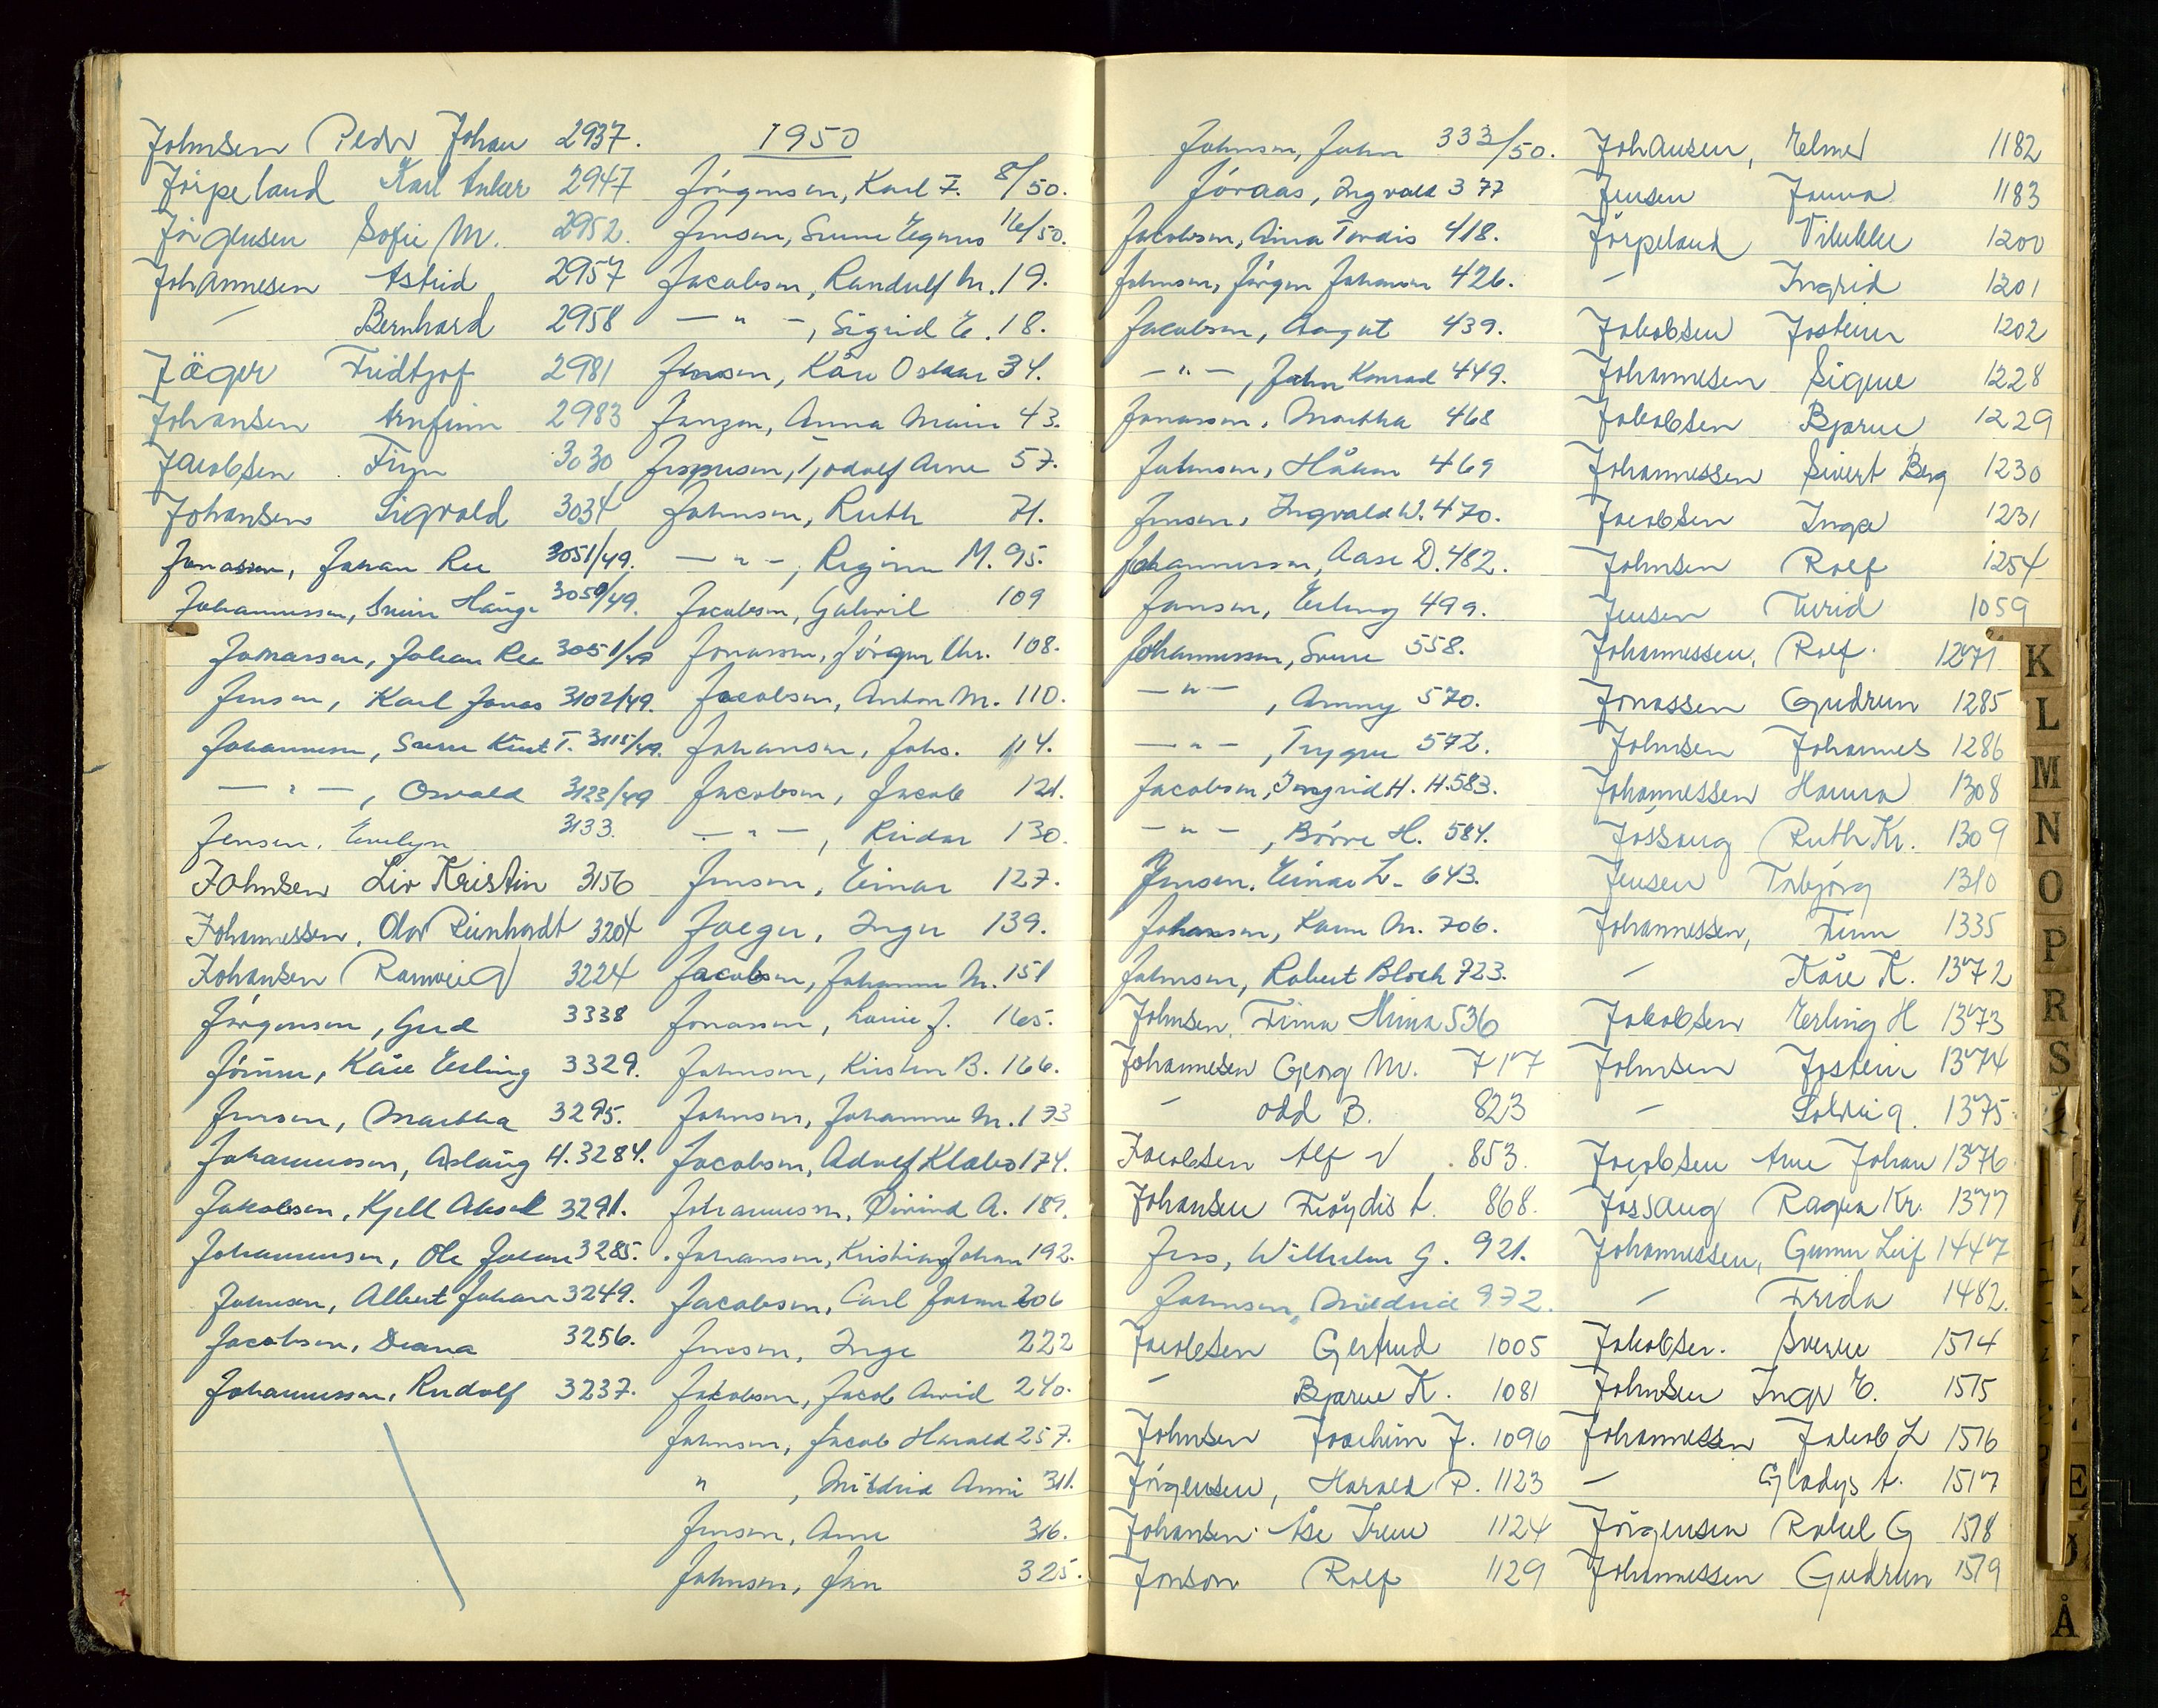 Johnsen Peder Johan 2937.
Jörpeland Karl Anker 2947
Jörgensen Sofie M. 2952.
Johannesen Astrid 2957
— Bernhard 2958
Jäger Fridtjof 2981
Johansen Arnfinn 2983
Jacobsen Finn 3030
Johansen Sigvald 3034
Jonassen, Johan Ree 3051/49.
Johannessen, Svein Hauge 3059/49.
Jonassen, Johan Ree 3051/49
Jensen, Karl Jonas 3102/49.
Johannesen, Sverre Knut T. 3115/49.
— " —, Osvald 3123/49
Jensen, Evelyn 3133.
Johnsen Liv Kristin 3156
Johannessen, Olav Reinhardt 3204
Johansen Rannveig 3224
Jörgensen, Gerd 3338
Kåre Erling 3329.
Jensen, Martha 3295.
Johannessen, Aslaug H. 3284.
Jakobsen, Kjell Aksel 3291.
Johannessen, Ole Johan 3285.
Johnsen, Albert Johan 3249.
Jacobsen, Diana 3256.
Johannessen, Rudolf 3237.
1950
Jörgensen, Karl F. 8/50.
Jensen, Sverre Magnus 16/50.
Jacobsen, Randulf M. 19.
— " —, Sigrid E. 18.
Jensen, Kåre Oskar 34.
Janzon, Anna Marie 43.
Jespersen, Tjodolf Arne 57.
Johnsen, Ruth 71.
— " —, Regine M. 95.
Jacobsen, Gabriel 109
Jonassen, Jörgen Chr. 108.
Jacobsen, Anton M. 110.
Johansen, Johs. 114.
Jacobsen, Jacob 121.
— " —, Reidar 130.
Jensen, Einar 127.
Jaeger, Inger 139.
Jacobsen, Johanne M. 151
Jonassen, Lovise J. 165.
Johnsen, Kirsten B. 166.
Johnsen, Johanne M. 173
Jacobsen, Adolf Klæbo 174.
Johannessen, Öivind A. 189.
Johansen, Kristian Johan 192.
Jacobsen, Carl Johan 206
Jensen, Inge 222
Jakobsen, Jacob Arvid 240.
Johnsen, Jacob Harald 257.
", Mildrid Anni 311.
Jensen, Arne 316.
Johnsen, Jan 325.
Johnsen, John 333/50.
Jöraas, Ingvald 377
Jacobsen, Aina Tordis 418.
Johnsen, Jörgen Johannes 426.
Jacobsen, Aagot 439.
— " —, John Konrad 449.
Jonassen, Martha 468
Johnsen, Håkon 469
Jensen, Ingvald W. 470.
Johannessen, Aase D. 482.
Jansen, Erling 499.
Johannessen, Sverre 558.
— " —, Anny 570.
— " —, Trygve 572.
Jacobsen, Ingrid H. H. 583.
— " —, Börre H. 584.
Jensen, Einar L. 643.
Johansen, Karen M. 706.
Johnsen, Robert Bloch 723.
Johnsen, Finna Minna 536
Johannesen Georg M. 717
— Odd B. 823
Jacobsen Alf V 853.
Johansen Fröydis A. 868.
Jess, Wilhelm G. 921.
Johnsen, Mildrid 972.
Jacobsen Gertrud 1005
— Bjarne K. 1081
Johnsen Joachim J. 1096
Jörgensen, Harald P. 1123
Johansen Åse Irene 1124
Jonson Rolf 1129
Johansen, Elmer 1182
Jensen Janna 1183
Jörpeland Vilhelm 1200
— Ingrid 1201
Jakobsen Jostein 1202
Johannesen Signe 1228
Jakobsen Bjarne 1229
Johannessen Sivert Berg 1230
Jacobsen Inga 1231
Johnsen Rolf 1254
Jensen Turid 1059
Johannessen, Rolf. 1271
Jonassen Gudrun 1285
Johnsen Johannes 1286
Johannessen Hanna 1308
Jössang Ruth Kr. 1309
Jensen Torbjörg 1310
Johannessen, Finn 1335
— Kåre K. 1372
Jakobsen Erling H 1373
Johnsen Jostein 1374
— Solveig. 1375
Jacobsen Arne Johan 1376
Jössang Ragna Kr. 1377
Johannessen, Gunnar Leif 1447
— Frida 1482.
Jakobsen. Sverre 1514
Johnsen Inger E. 1515
Johannessen Jakob L 1516
— Gladys A. 1517
Jörgensen Rakel G 1518
Johannessen Gudrun 1519
K
L
M
N
O
P
R
S
E
Ø
Å